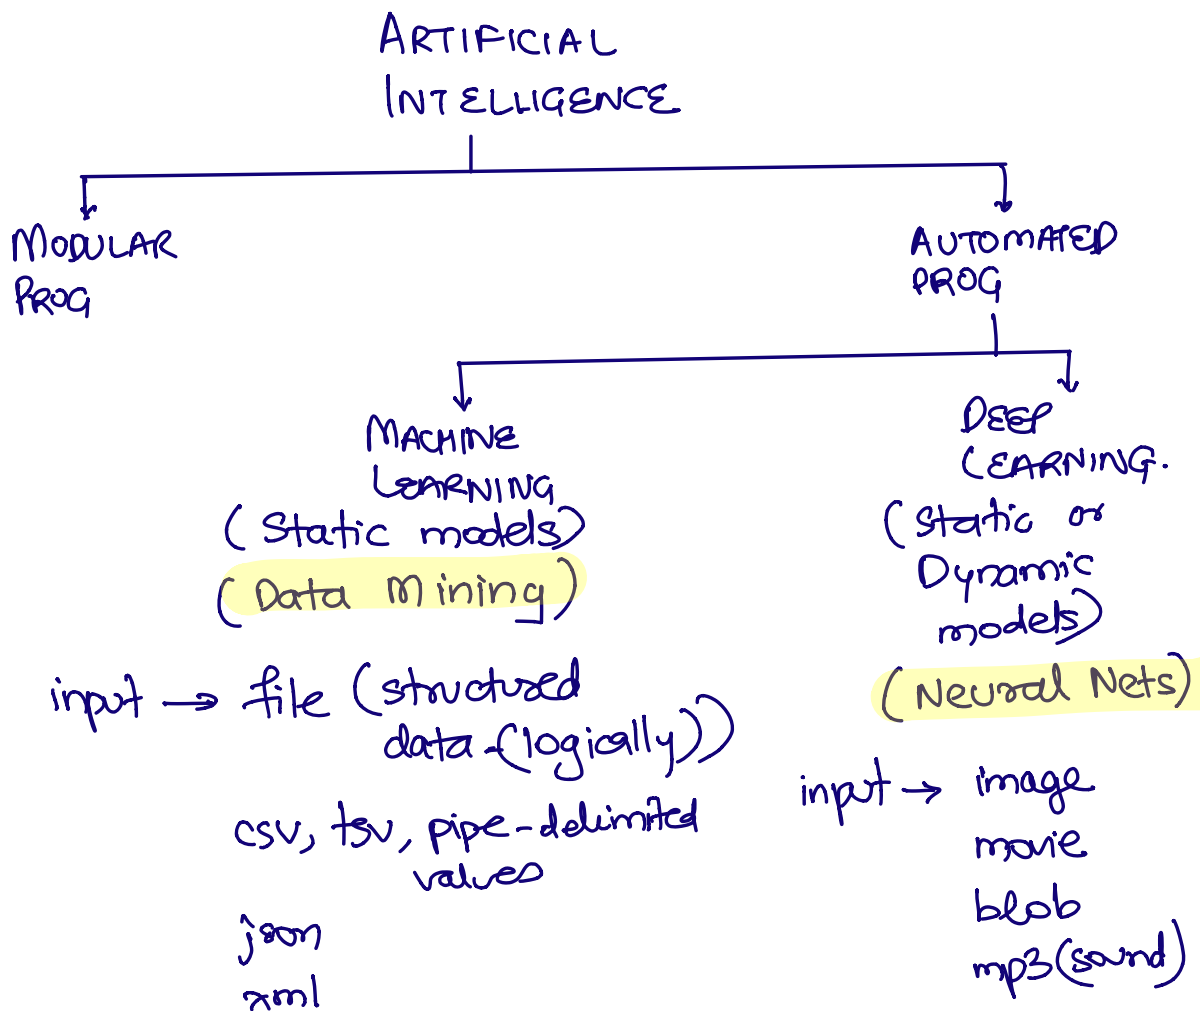 ARTIFICIAL
INTELLIGENCE
MODULAR
PROG
AUTOMATED
PROG
MACHINE
LEARNING
(Static models)
(Data Mining)
input → file (structured
data-(logically))
csv, tsv, pipe-delimited
values
json
xml
DEEP
LEARNING.
(static or
Dynamic
models)
(Neural Nets)
input → image
movie
blob
mp3(sound)